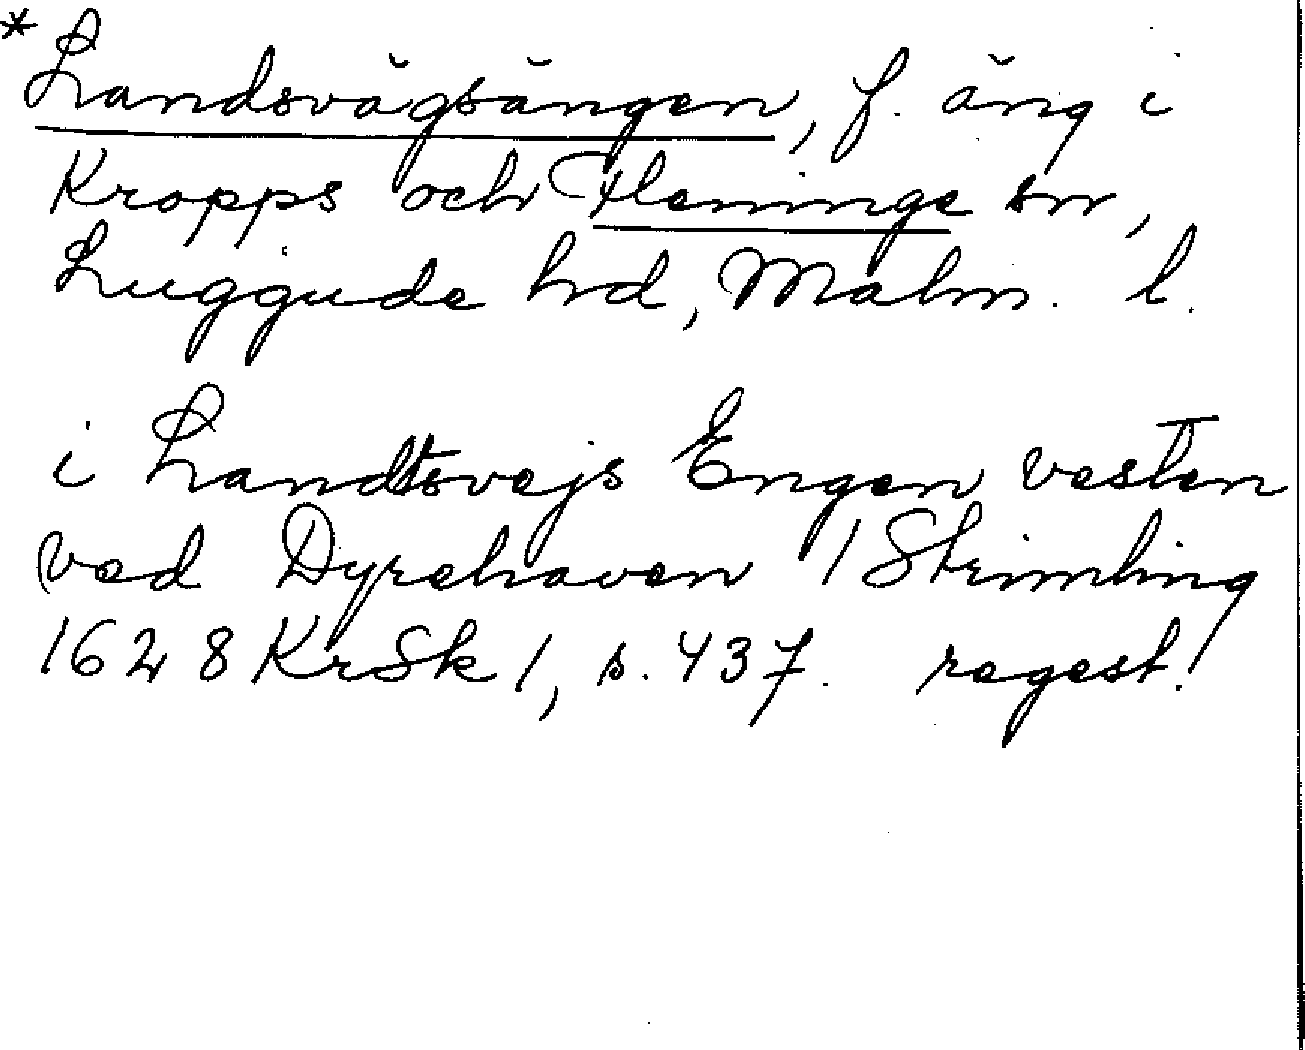 *Landsvägsängen, f. äng i
Kropps och Fleninge snr,
Luggude hd, Malm. l.
i Landtsvejs Engen vesten
ved Dyrehaven /Strimling
1628 KrSk 1, s. 437. regest!